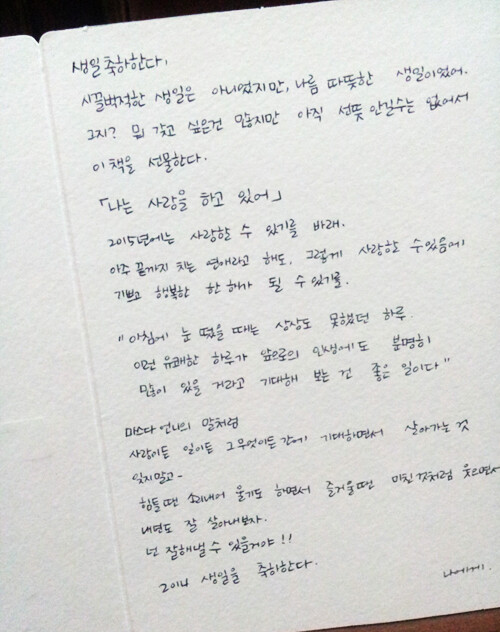 생일 축하한다.
시끌벅적한 생일은 아니었지만, 나름 따뜻한 생일이었어.
그지? 뭐 갖고 싶은건 많지만 아직 선뜻 안길수는 없어서
이 책을 선물한다.
「나는 사랑을 하고 있어」
2015년에는 사랑할 수 있기를 바래.
아주 끝까지 치는 연애라고 해도, 그렇게 사랑할 수 있음에
기쁘고 행복한 한 해가 될 수 있기를.
"아침에 눈 떴을 때는 상상도 못했던 하루.
이런 유쾌한 하루가 앞으로의 인생에도 분명히
많이 있을 거라고 기대해 보는 건 좋은 일이다"
마스다 언니의 말처럼
사랑이든 일이든 그 무엇이든 간에 기대하면서 살아가는 것
잊지말고-
힘들 땐 소리내어 울기도 하면서 즐거울 땐 미친 것처럼 웃으면서
내년도 잘 살아내보자.
넌 잘해낼 수 있을거야!!
2014 생일을 축하한다.
나에게.